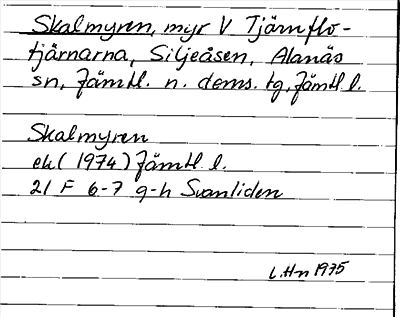 Skalmyren, myr V Tjärnflo-
tjärnarna, Siljeåsen, Alanäs
sn, Jämtl. n. doms. tg, Jämtl. l.
Skalmyren
ek ( 1974 ) Jämtl. l.
21 F 6-7 g-h Svanliden
L.Hn 1975